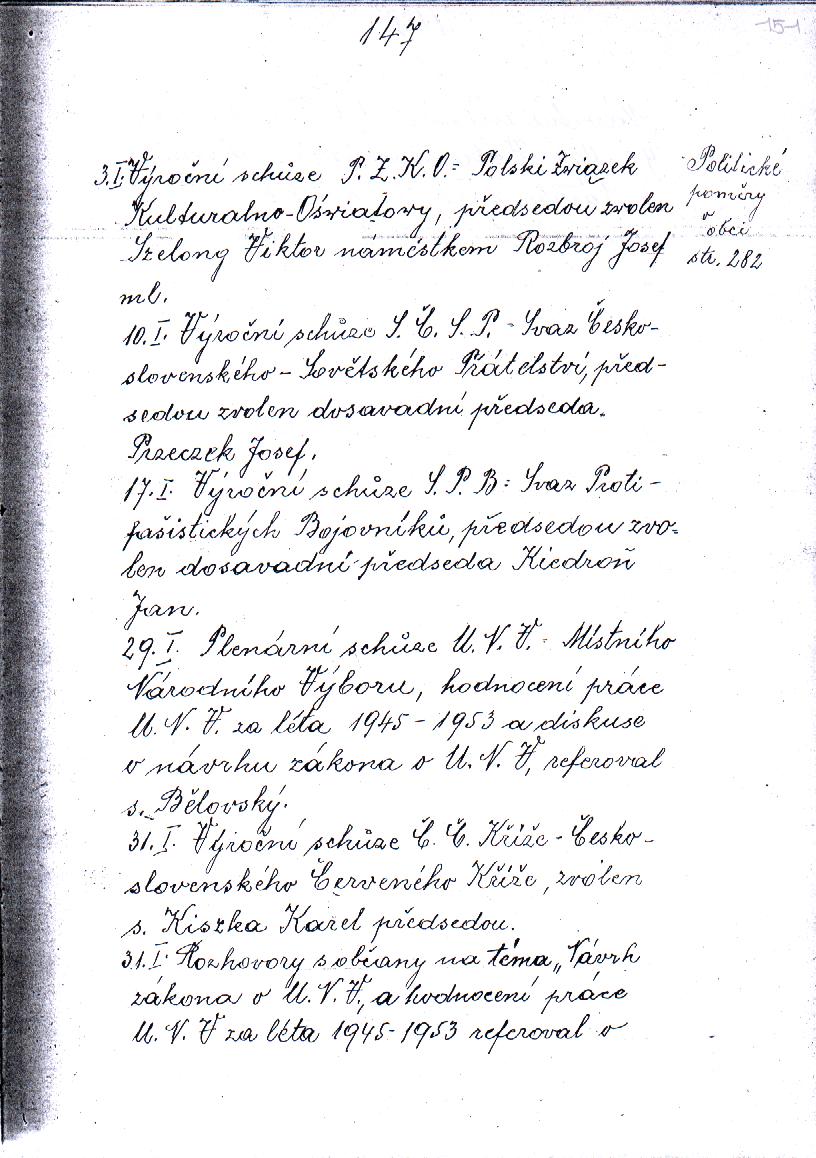 147
-15-1
3.I. Výroční schůze P.Z.K.O.= Polski Związek
Kulturalno-Oświatowy, předsedou zvolen
Szelong Viktor náměstkem Rozbroj Josef
ml.
Politické
poměry
v obci
str. 282
10.I. Výroční schůze S.Č.S.P. - Svaz Česko-
slovenského - Sovětského Přátelství, před-
sedou zvolen dosavadní předseda.
Przeczek Josef.
17.I. Výroční schůze S.P.B= Svaz Proti-
fašistických Bojovníků, předsedou zvo-
len dosavadní předseda Kiedroň
Jan.
29.I. Plenární schůze M.N.V.= Místního
Národního Výboru, hodnocení práce
M.N.V. za léta 1945-1953 a diskuse
o návrhu zákona o M.N.V, referoval
s. Bělovský.
31.I. Výroční schůze Č.Č. Kříže - Česko-
slovenského Červeného Kříže, zvolen
s. Kiszka Karel předsedou.
31.I. Rozhovory s občany na téma „Návrh
zákona o M.N.V., a hodnocení práce
M.N.V za léta 1945-1953 referoval o